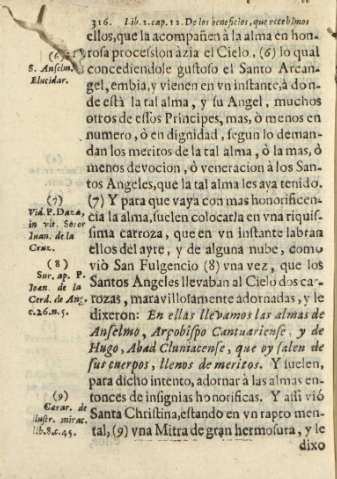 316. Lib. 2. cap. 12. De los beneficios, que recebimos
ellos, que la acompañen à la alma en hon-
rosa procession àzia el Cielo, (6) lo qual
concediendole gustoso el Santo Arcan-
gel, embia, y vienen en vn instante, à don-
de està la tal alma, y su Angel, muchos
otros de essos Principes, mas, ò menos en
numero, ò en dignidad, segun lo deman-
dan los meritos de la tal alma, ò la mas, ò
menos devocion, ò veneracion à los San-
tos Angeles, que la tal alma les aya tenido.
(7) Y para que vaya con mas honorificen-
cia la alma, suelen colocarla en vna riquis-
sima carroza, que en vn instante labran
ellos del ayre, y de alguna nube, como
viò San Fulgencio (8) vna vez, que los
Santos Angeles llevaban al Cielo dos car-
rozas, maravillosamente adornadas, y le
dixeron: En ellas llevamos las almas de
Anselmo, Arçobispo Cantuariense, y de
Hugo, Abad Cluniacense, que oy salen de
sus cuerpos, llenos de meritos. Y suelen,
para dicho intento, adornar à las almas en-
tonces de insignias honorificas. Y assi viò
Santa Christina, estando en vn rapto men-
tal, (9) vna Mitra de gran hermosura, y le
dixo
(6)
S. Anselm.
Elucidar.
(7)
Vid. P. Daza,
in vit. Soror
Juan. de la
Cruz.
(8)
Sur. ap. P.
Joan. de la
Cerd. de Ang.
c. 26. n. 5.
(9)
Cæsar. de
illustr. mirac.
lib. 8. c. 45.